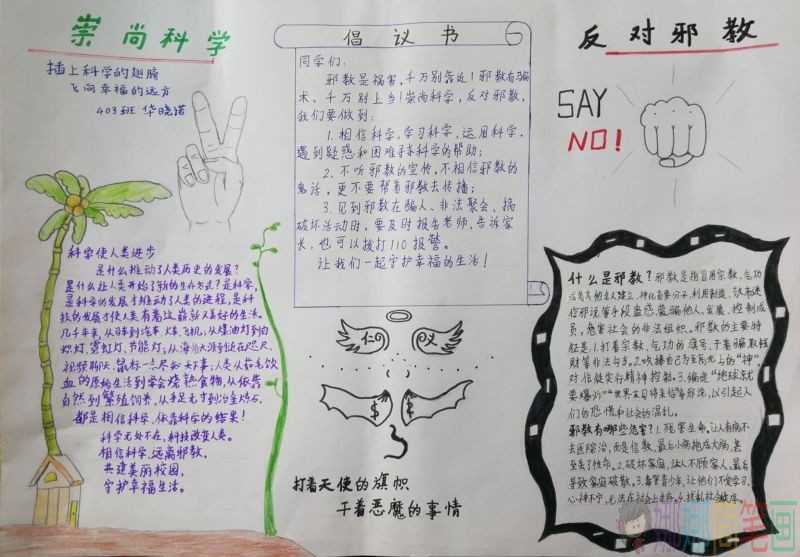 崇尚科学
插上科学的翅膀
飞向幸福的远方
403班 华晓诺
科学使人类进步
是什么推动了人类历史的发展?
是什么让人类开始了新的生存方式?是科学,
是科学的发展才推动了人类的进程,是科
技的发展才使人类有着这崭新又美好的生活。
几千年来,从马车到汽车 火车 飞机;从煤油灯到白
炽灯、霓虹灯、节能灯;从海角天涯到近在咫尺、
视频聊天、鼠标一点尽知好事;人类从茹毛饮
血的原始生活到学会烧熟食物,从依靠
自然到繁殖饲养,从手足无寸到冶金炼石,
都是相信科学、依靠科学的结果!
科学无处不在,科技改变人类。
相信科学,远离邪教,
共建美丽校园,
守护幸福生活。
倡议书
同学们:
邪教是祸害,千万别靠近!邪教有骗
术,千万别上当!崇尚科学,反对邪教,
我们要做到:
1.相信科学,学习科学,运用科学,
遇到疑惑和困难寻求科学的帮助;
2.不听邪教的宣传,不相信邪教的
鬼话,更不要帮着邪教去传播;
3.见到邪教在骗人、非法聚会、搞
破坏活动时,要及时报告老师,告诉家
长,也可以拨打110报警。
让我们一起守护幸福的生活!
仁 义
$ $
打着天使的旗帜
干着恶魔的事情
反对邪教
SAY
NO!
什么是邪教?邪教是指冒用宗教、气功
或者其他名义建立、神化首要分子,利用制造、散布迷
信邪说等手段蛊惑、蒙骗他人,发展、控制成
员,危害社会的非法组织。邪教的主要特
征是:1.打着宗教、气功的旗号,干着骗取钱
财等非法勾当。2.吹捧自己为至高无上的“神”
对信徒实行精神控制。3.编造“地球就
要爆炸”“世界末日将来临”等邪说,以引起人
们的恐慌和社会的混乱。
邪教有哪些危害?1.残害生命。让人有病不
去医院治,而是信教,最后小病拖成大病,甚
至丢了性命。2.破坏家庭。让人不顾家人,最后
导致家庭破散。3.毒害青少年,让他们不爱学习,
心神不宁,无法在社会上生存。4.扰乱社会秩序。